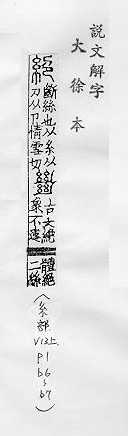 說文解字
大徐本
絕
斷絲也从糸从
刀从卩情雪切
𢇍
古文絕
象不連
體絕
二絲
（糸部
V13上.
P1
b6
~
b7）